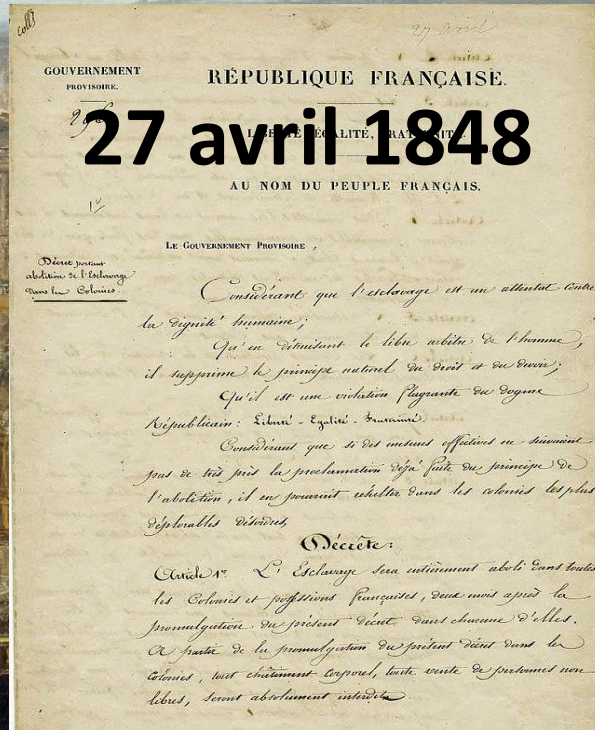 27 avril
GOUVERNEMENT
PROVISOIRE.
RÉPUBLIQUE FRANÇAISE.
27 avril 1848
LIBERTÉ, ÉGALITÉ, FRATERNITÉ.
AU NOM DU PEUPLE FRANÇAIS.
LE GOUVERNEMENT PROVISOIRE,
Décret portant
abolition de l'Esclavage
dans les Colonies
Considérant que l'esclavage est un attentat contre
la dignité humaine;
Qu'en détruisant le libre arbitre de l'homme,
il supprime le principe naturel du droit et du devoir;
Qu'il est une violation flagrante du dogme
Républicain: Liberté - Egalité - Fraternité
Considérant que si des mesures effectives ne suivaient
pas de très près la proclamation déjà faite du principe de
l'abolition, il en pourrait résulter dans les colonies les plus
déplorables désordres,
Décrète:
Article 1er L'Esclavage sera entièrement aboli dans toutes
les Colonies et possessions françaises, deux mois après la
promulgation du présent décret dans chacune d'elles.
A partir de la promulgation du présent décret dans les
colonies, tout châtiment corporel, toute vente de personnes non
libres, seront absolument interdits